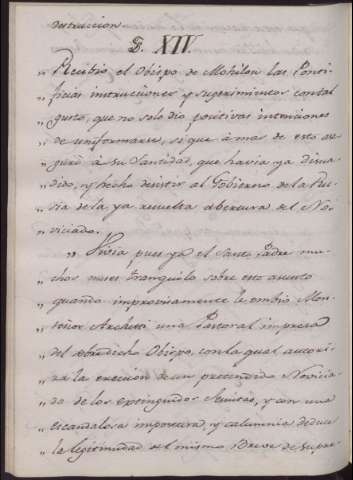 destruccion.
§. XIV.
„ Recibio el Obispo de Mohilou las Ponti-
„ ficias instrucciones y sugerimientos con tal
„ gusto, que no solo dio positivas intenciones
„ de uniformarse, si que à mas de esto ase
„ guró à su Santidad, que havia ya disua
„ dido, y hecho desistir al Gobierno de la Ru-
„ sia de la ya resuelta abertura del No-
„ viciado.
„ Vivia pues ya el Santo Padre mu-
„ chos meses tranquilo sobre este asunto
„ quando improvisamente le embio Mon-
„ señor Archetti una Pastoral impresa
„ del sobredicho Obispo, con la qual autori-
„ za la ereccion de un pretendido Novicia
„ do de los extinguidos Jesuitas, y con una
„ escandalosa impostura, y calumnia deduce
„ la legitimidad del mismo Breve de Supre-